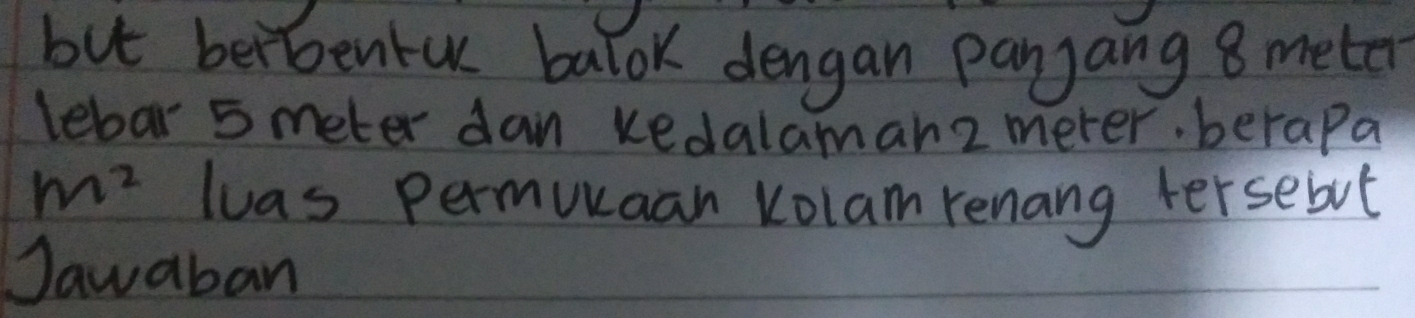 but berbentuk balok dengan panjang 8 meter
lebar 5 meter dan kedalaman 2 meter. berapa
m² luas permukaan kolam renang tersebut
Jawaban